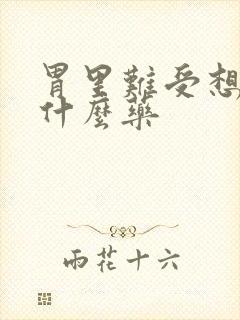 胃里難受想
什麼藥
雨花十六